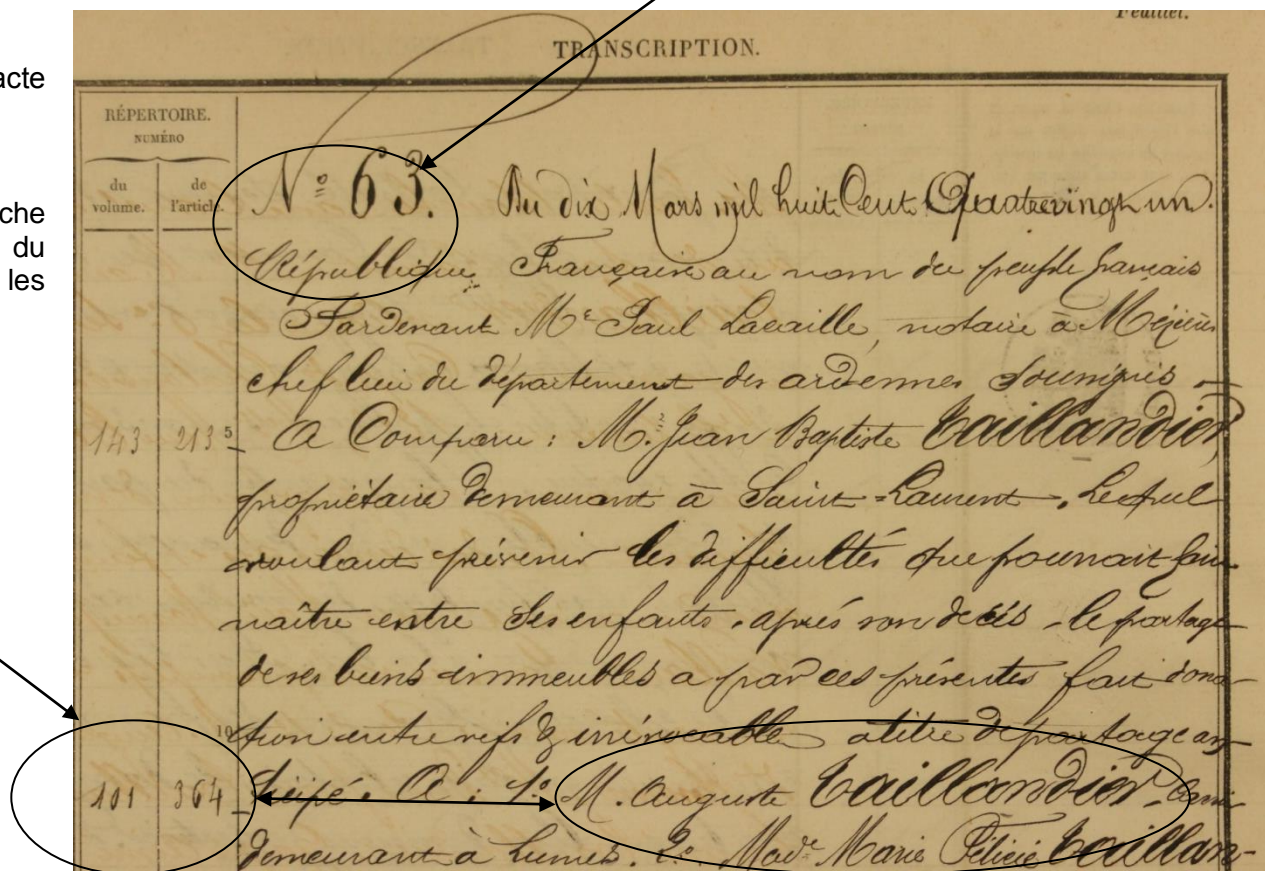 Feuillet.
TRANSCRIPTION.
acte
RÉPERTOIRE.
NUMÉRO
du volume.
de l'article.
che
du
les
Nº 63. Du dix Mars mil huit Cent Quatrevingt un.
République Française au nom du peuple français
Pardevant Me Paul Lacaille, notaire à Mézières
chef lieu du département des ardennes soussignés
143 213 5 A Comparu : M. Jean Baptiste Taillandier,
propriétaire demeurant à Saint-Laurent, Lequel
voulant prévenir les difficultés que pourrait faire
naître entre ses enfants, après son décès, le partage
de ses biens immeubles a par ces présentes fait dona-
10 tion entre vifs & irrévocable à titre de partage an-
101 364 ticipé. A : 1º M. Auguste Taillandier
demeurant à Lumes. 2º Made Marie Félicie Taillan-